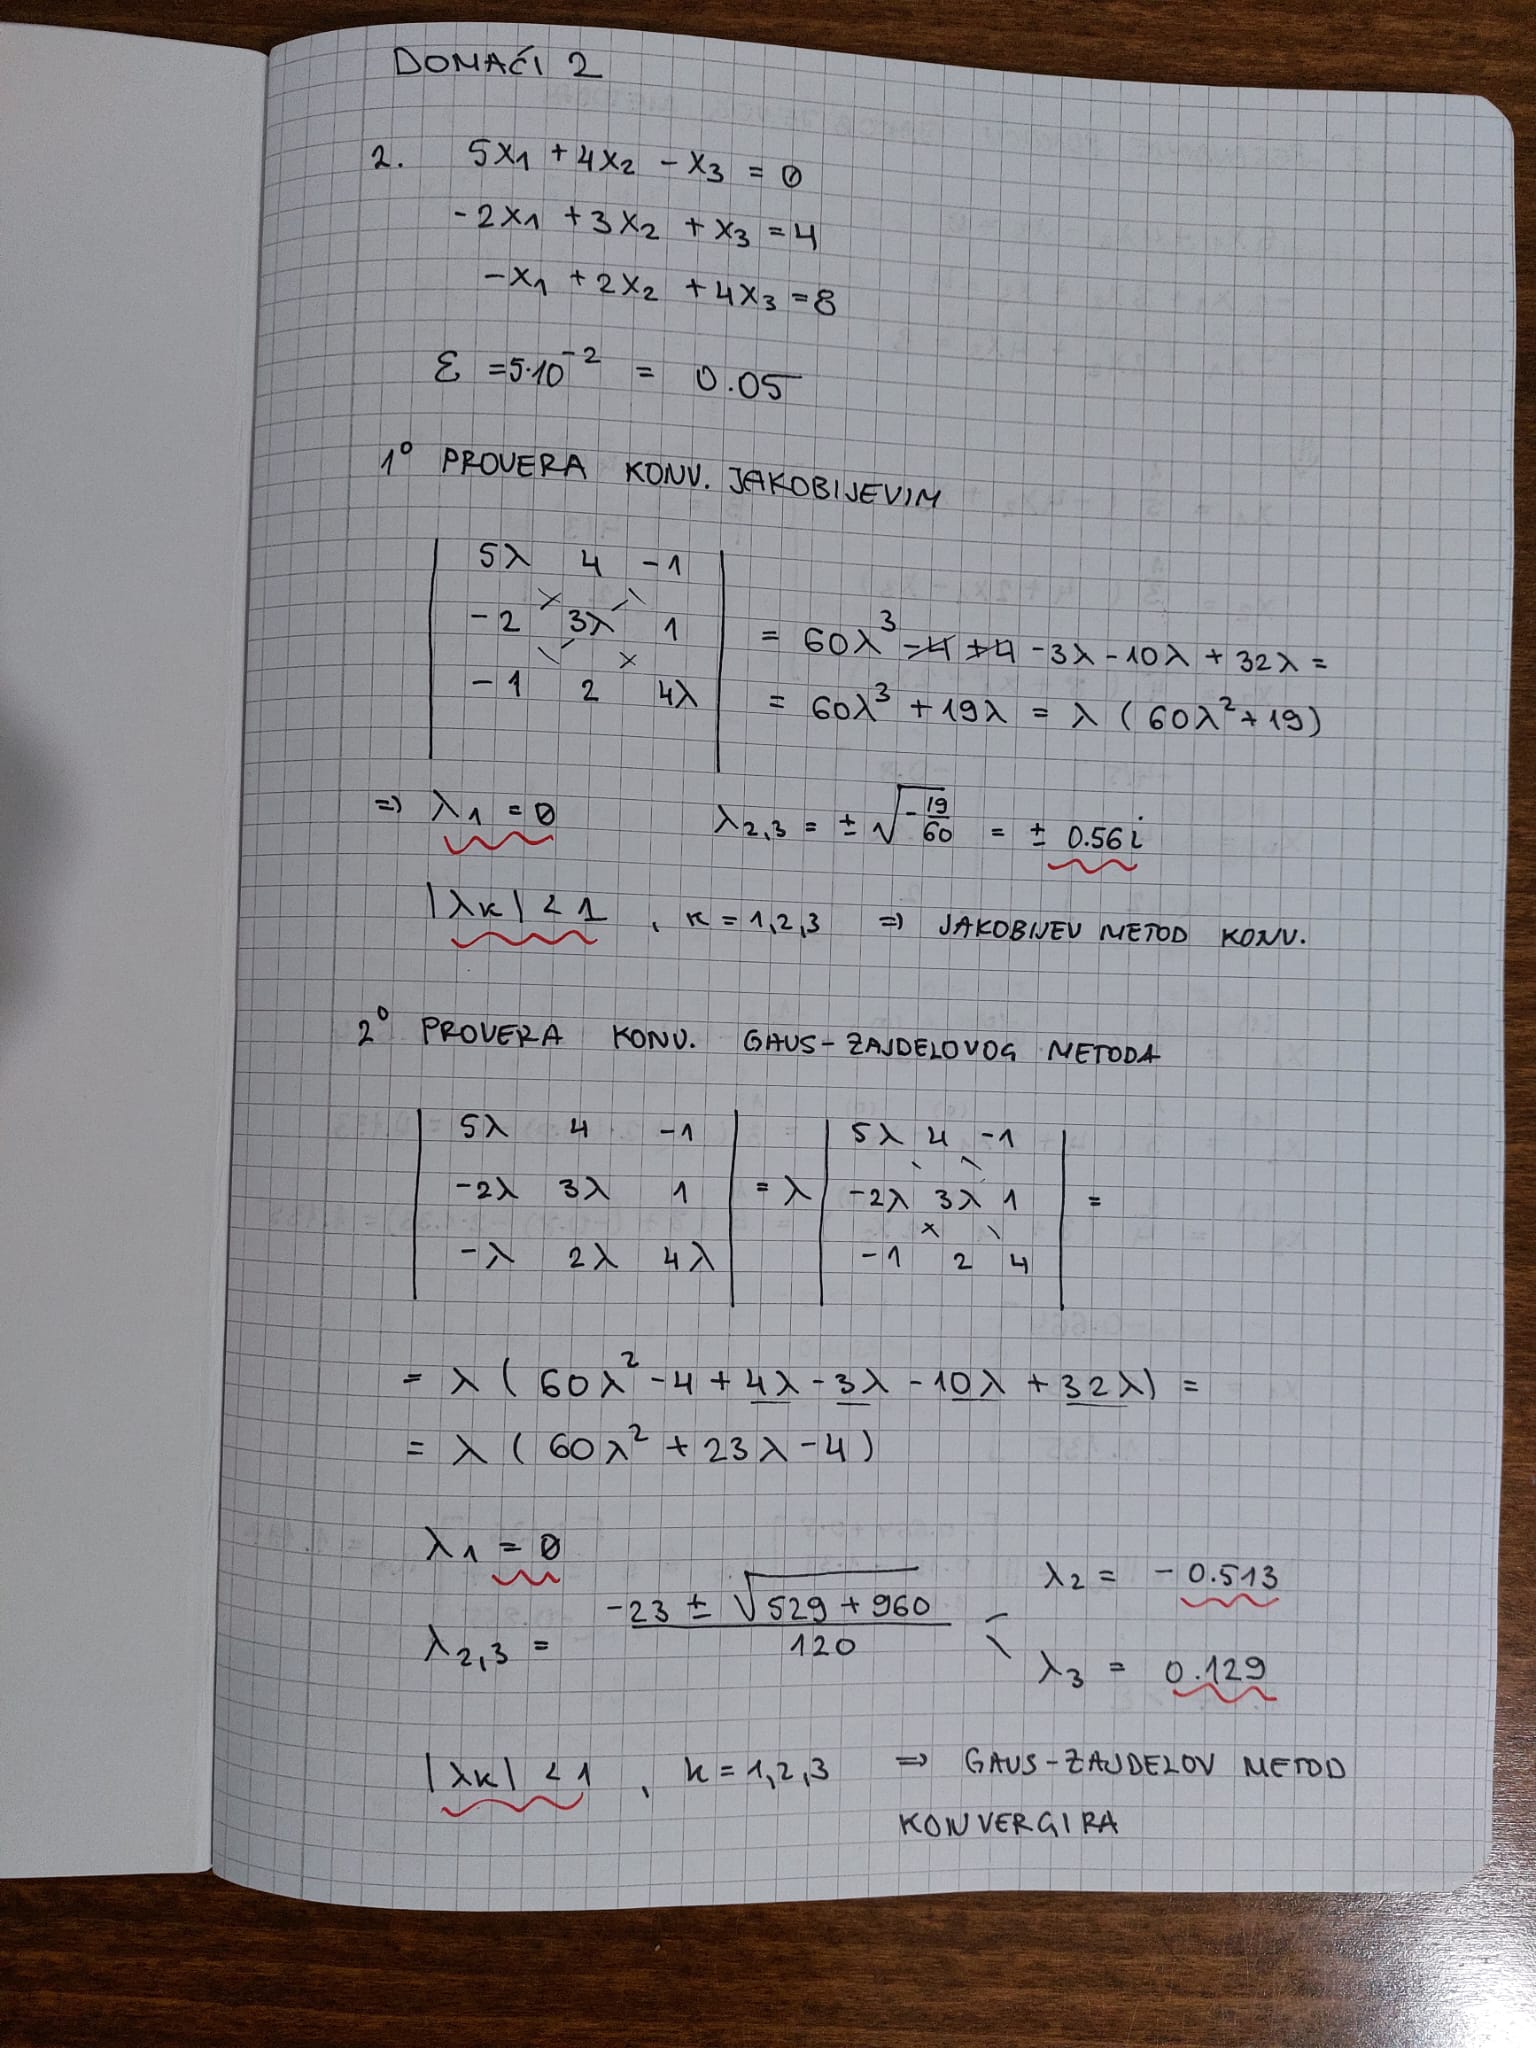 DOMAĆI 2
2. 5x₁ + 4x₂ - x₃ = 0
-2x₁ + 3x₂ + x₃ = 4
-x₁ + 2x₂ + 4x₃ = 8
ε = 5·10⁻² = 0.05
1° PROVERA KONV. JAKOBIJEVIM
| 5λ 4 -1 |
| -2 3λ 1 | = 60λ³ -4 +4 -3λ -10λ + 32λ =
| -1 2 4λ | = 60λ³ + 19λ = λ (60λ² + 19)
=> λ₁ = 0 λ₂,₃ = ± √(-19/60) = ± 0.56i
|λₖ| < 1, k = 1,2,3 => JAKOBIJEV METOD KONV.
2° PROVERA KONV. GAUS-ZAJDELOVOG METODA
| 5λ 4 -1 | | 5λ 4 -1 |
| -2λ 3λ 1 | = λ | -2λ 3λ 1 | =
| -λ 2λ 4λ | | -1 2 4 |
= λ ( 60λ² - 4 + 4λ - 3λ - 10λ + 32λ) =
= λ ( 60λ² + 23λ - 4)
λ₁ = 0
λ₂,₃ = (-23 ± √(529 + 960))/120
λ₂ = -0.513
λ₃ = 0.129
|λₖ| < 1, k = 1,2,3 => GAUS-ZAJDELOV METOD
KONVERGIRA